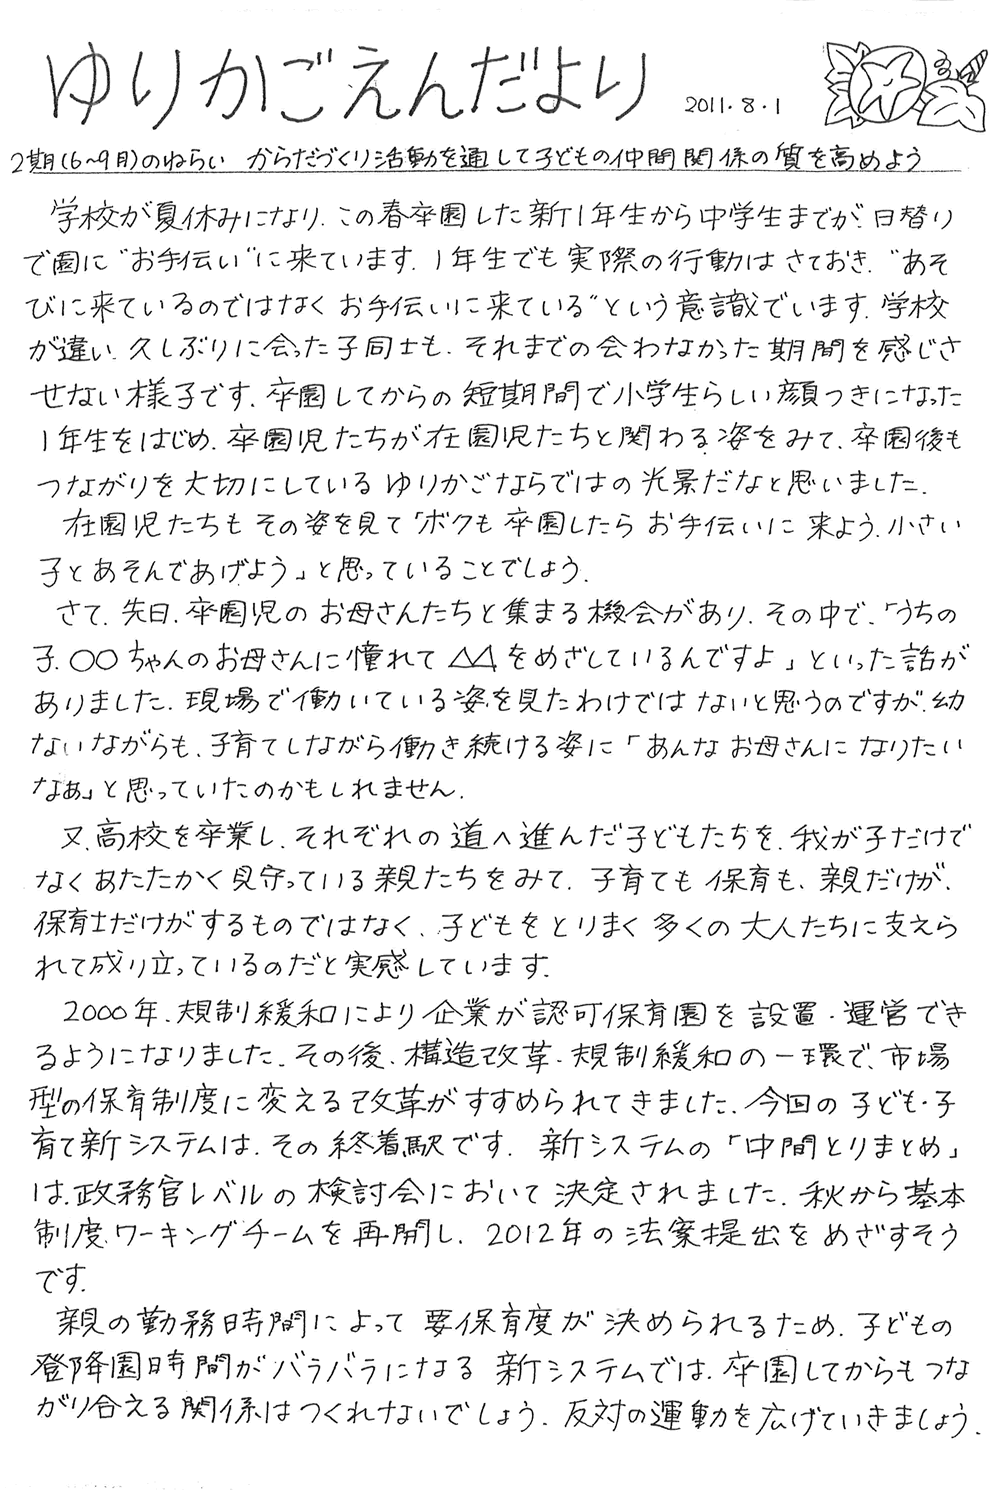 ゆりかごえんだより 2011.8.1
2期(6~9月)のねらい からだづくり活動を通して子どもの仲間関係の質を高めよう
学校が夏休みになり、この春卒園した新1年生から中学生までが、日替り
で園に"お手伝い"に来ています。1年生でも実際の行動はさておき、"あそ
びに来ているのではなくお手伝いに来ている"という意識でいます。学校
が違い、久しぶりに会った子同士も、それまでの会わなかった期間を感じさ
せない様子です。卒園してからの短期間で小学生らしい顔つきになった
1年生をはじめ、卒園児たちが在園児たちと関わる姿をみて、卒園後も
つながりを大切にしているゆりかごならではの光景だなと思いました。
在園児たちもその姿を見て「ボクも卒園したらお手伝いに来よう。小さい
子とあそんであげよう」と思っていることでしょう。
さて、先日、卒園児のお母さんたちと集まる機会があり、その中で、「うちの
子、○○ちゃんのお母さんに憧れて△△をめざしているんですよ」といった話が
ありました。現場で働いている姿を見たわけではないと思うのですが、幼
ないながらも、子育てしながら働き続ける姿に「あんなお母さんになりたい
なぁ」と思っていたのかもしれません。
又、高校を卒業し、それぞれの道へ進んだ子どもたちを、我が子だけで
なくあたたかく見守っている親たちをみて、子育ても保育も、親だけが、
保育士だけがするものではなく、子どもをとりまく多くの大人たちに支えら
れて成り立っているのだと実感しています。
2000年、規制緩和により企業が認可保育園を設置・運営でき
るようになりました。その後、構造改革・規制緩和の一環で、市場
型の保育制度に変える改革がすすめられてきました。今回の子ども・子
育て新システムは、その終着駅です。新システムの「中間とりまとめ」
は、政務官レベルの検討会において決定されました。秋から基本
制度ワーキングチームを再開し、2012年の法案提出をめざすそう
です。
親の勤務時間によって要保育度が決められるため、子どもの
登降園時間がバラバラになる新システムでは、卒園してからもつな
がり合える関係はつくれないでしょう。反対の運動を広げていきましょう。